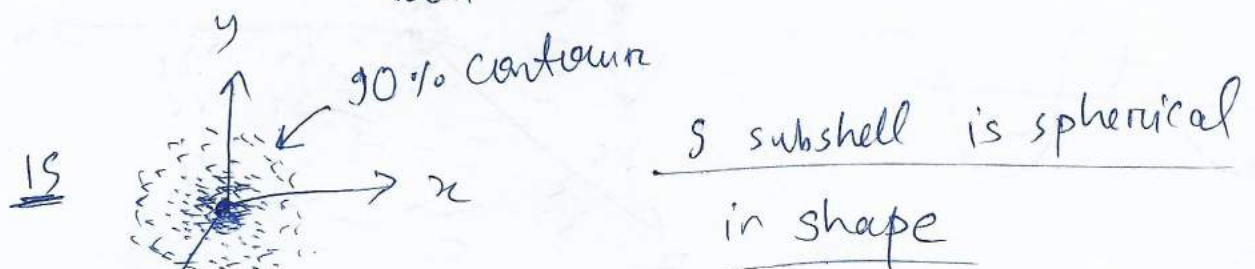 y
90% contour
S subshell is spherical
in shape
1S
x